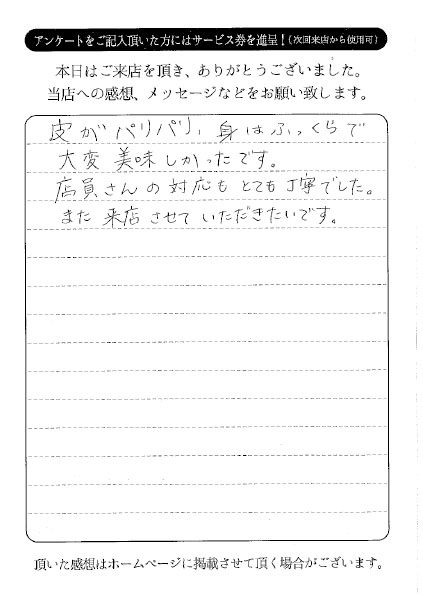 アンケートをご記入頂いた方にはサービス券を進呈！(次回来店から使用可)
本日はご来店を頂き、ありがとうございました。
当店への感想、メッセージなどをお願い致します。
皮がパリパリ、身はふっくらで
大変美味しかったです。
店員さんの対応もとても丁寧でした。
また来店させていただきたいです。
頂いた感想はホームページに掲載させて頂く場合がございます。